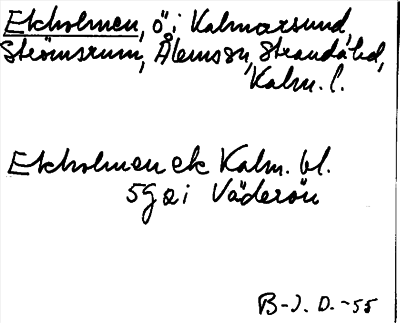 Ekholmen, ö i Kalmarsund,
Strömsrum, Ålems sn, Stranda hd,
Kalm. l.
Ekholmen ek Kalm. bl.
5g a i Väderön
B-J. D. -55